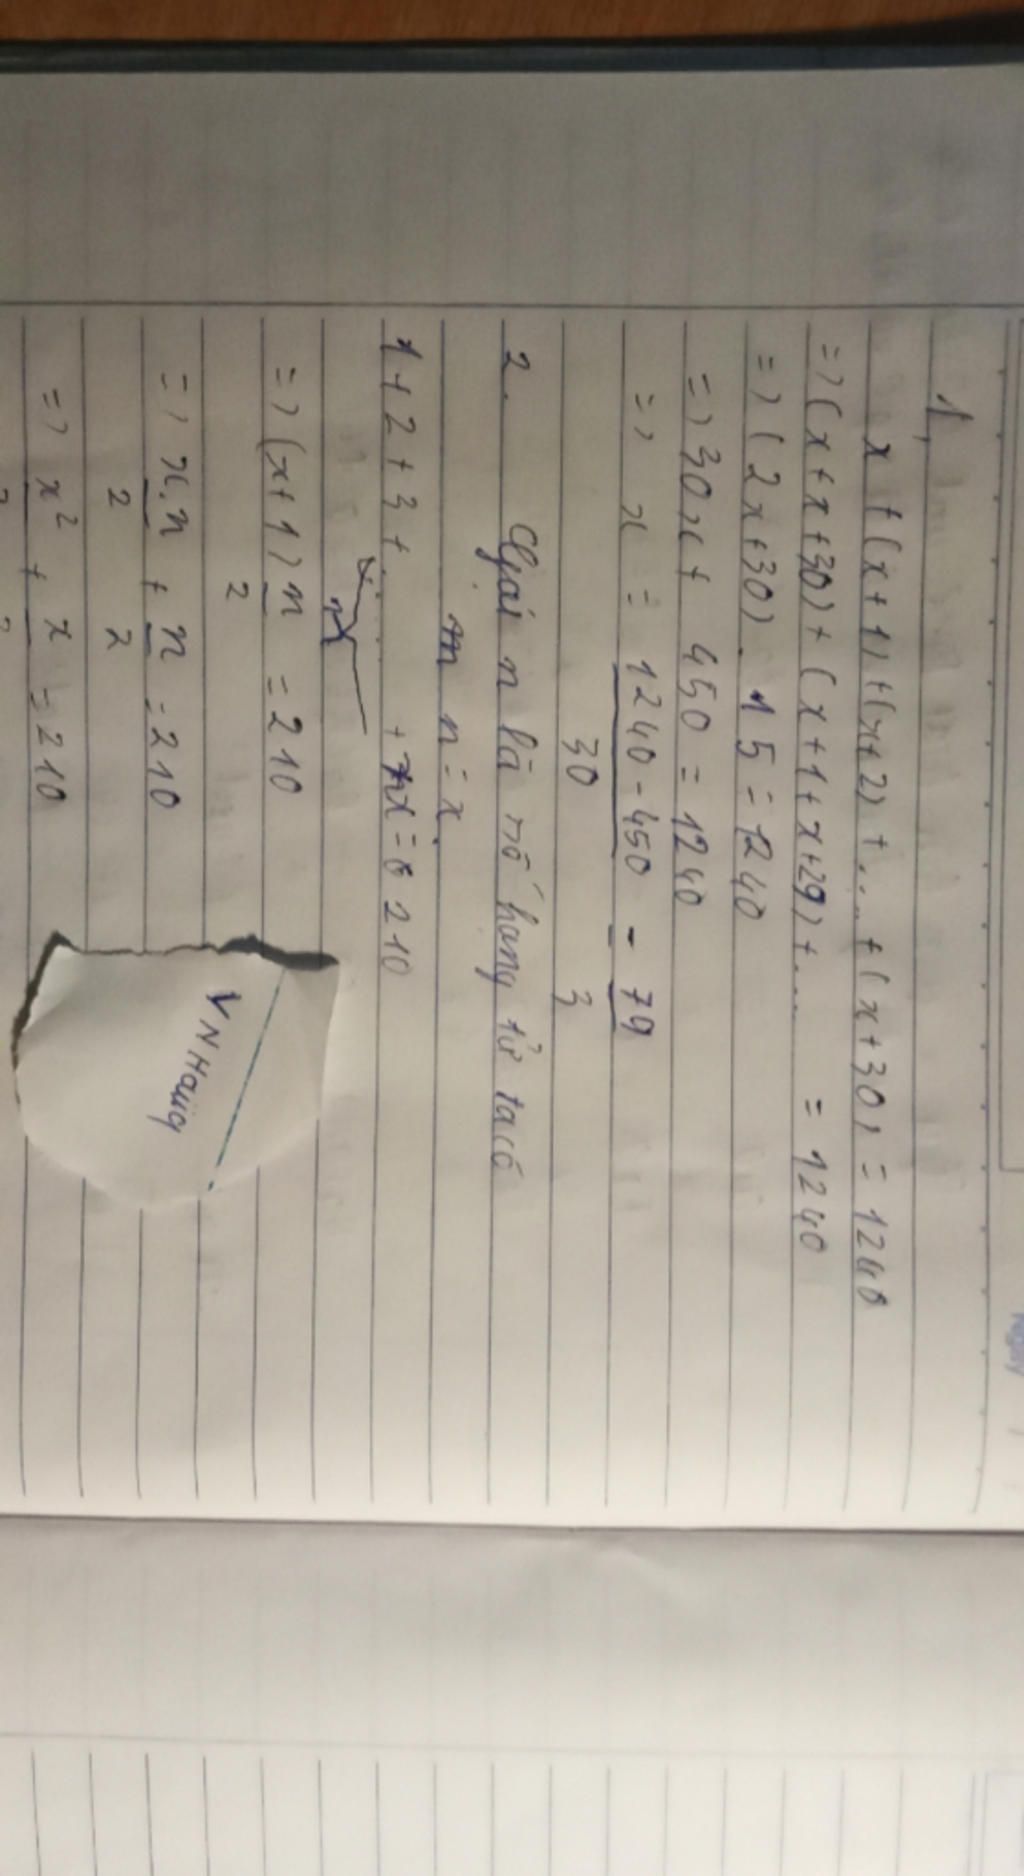 1,
x + (x + 1) + (x + 2) + .... + (x + 30) = 1240
=> (x + x + 30) + (x + 1 + x + 29) + .... = 1240
=> (2x + 30) . 15 = 1240
=> 30x + 450 = 1240
=> x = 1240 - 450 = 79
30 3
2. Gọi n là số hạng từ ta có
n = x.
1 + 2 + 3 + ..... + x = 210
=> (x + 1) n = 210
2
=> x.n + n = 210
2 2
=> x² + x = 210
2 2
VNHaüg